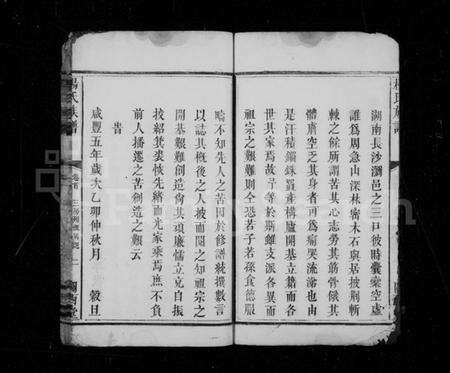 湖南長沙瀏邑之三口彼時囊橐空虛
誰爲周急山深林密木石與居披荆斬
棘之餘所謂苦其心志勞其筋骨餓其
體膚空乏其身者可爲痛哭流涕也由
是汗積鎦銖買產構廬開基立籍而各
世其家焉故予等於斯雖支派各異而
祖宗之艱難則仝恐若子若孫食德服
疇不知先人之苦因於修譜統撰數言
以誌其概後之人披而閱之知祖宗之
開基艱難創造尙其頑廉懦立克自振
拔紹箕裘恢先緒而光家乘焉庶不負
前人播遷之苦創造之艱云
旹
咸豐五年歲次乙卯仲秋月 穀旦
楊氏族譜
卷首